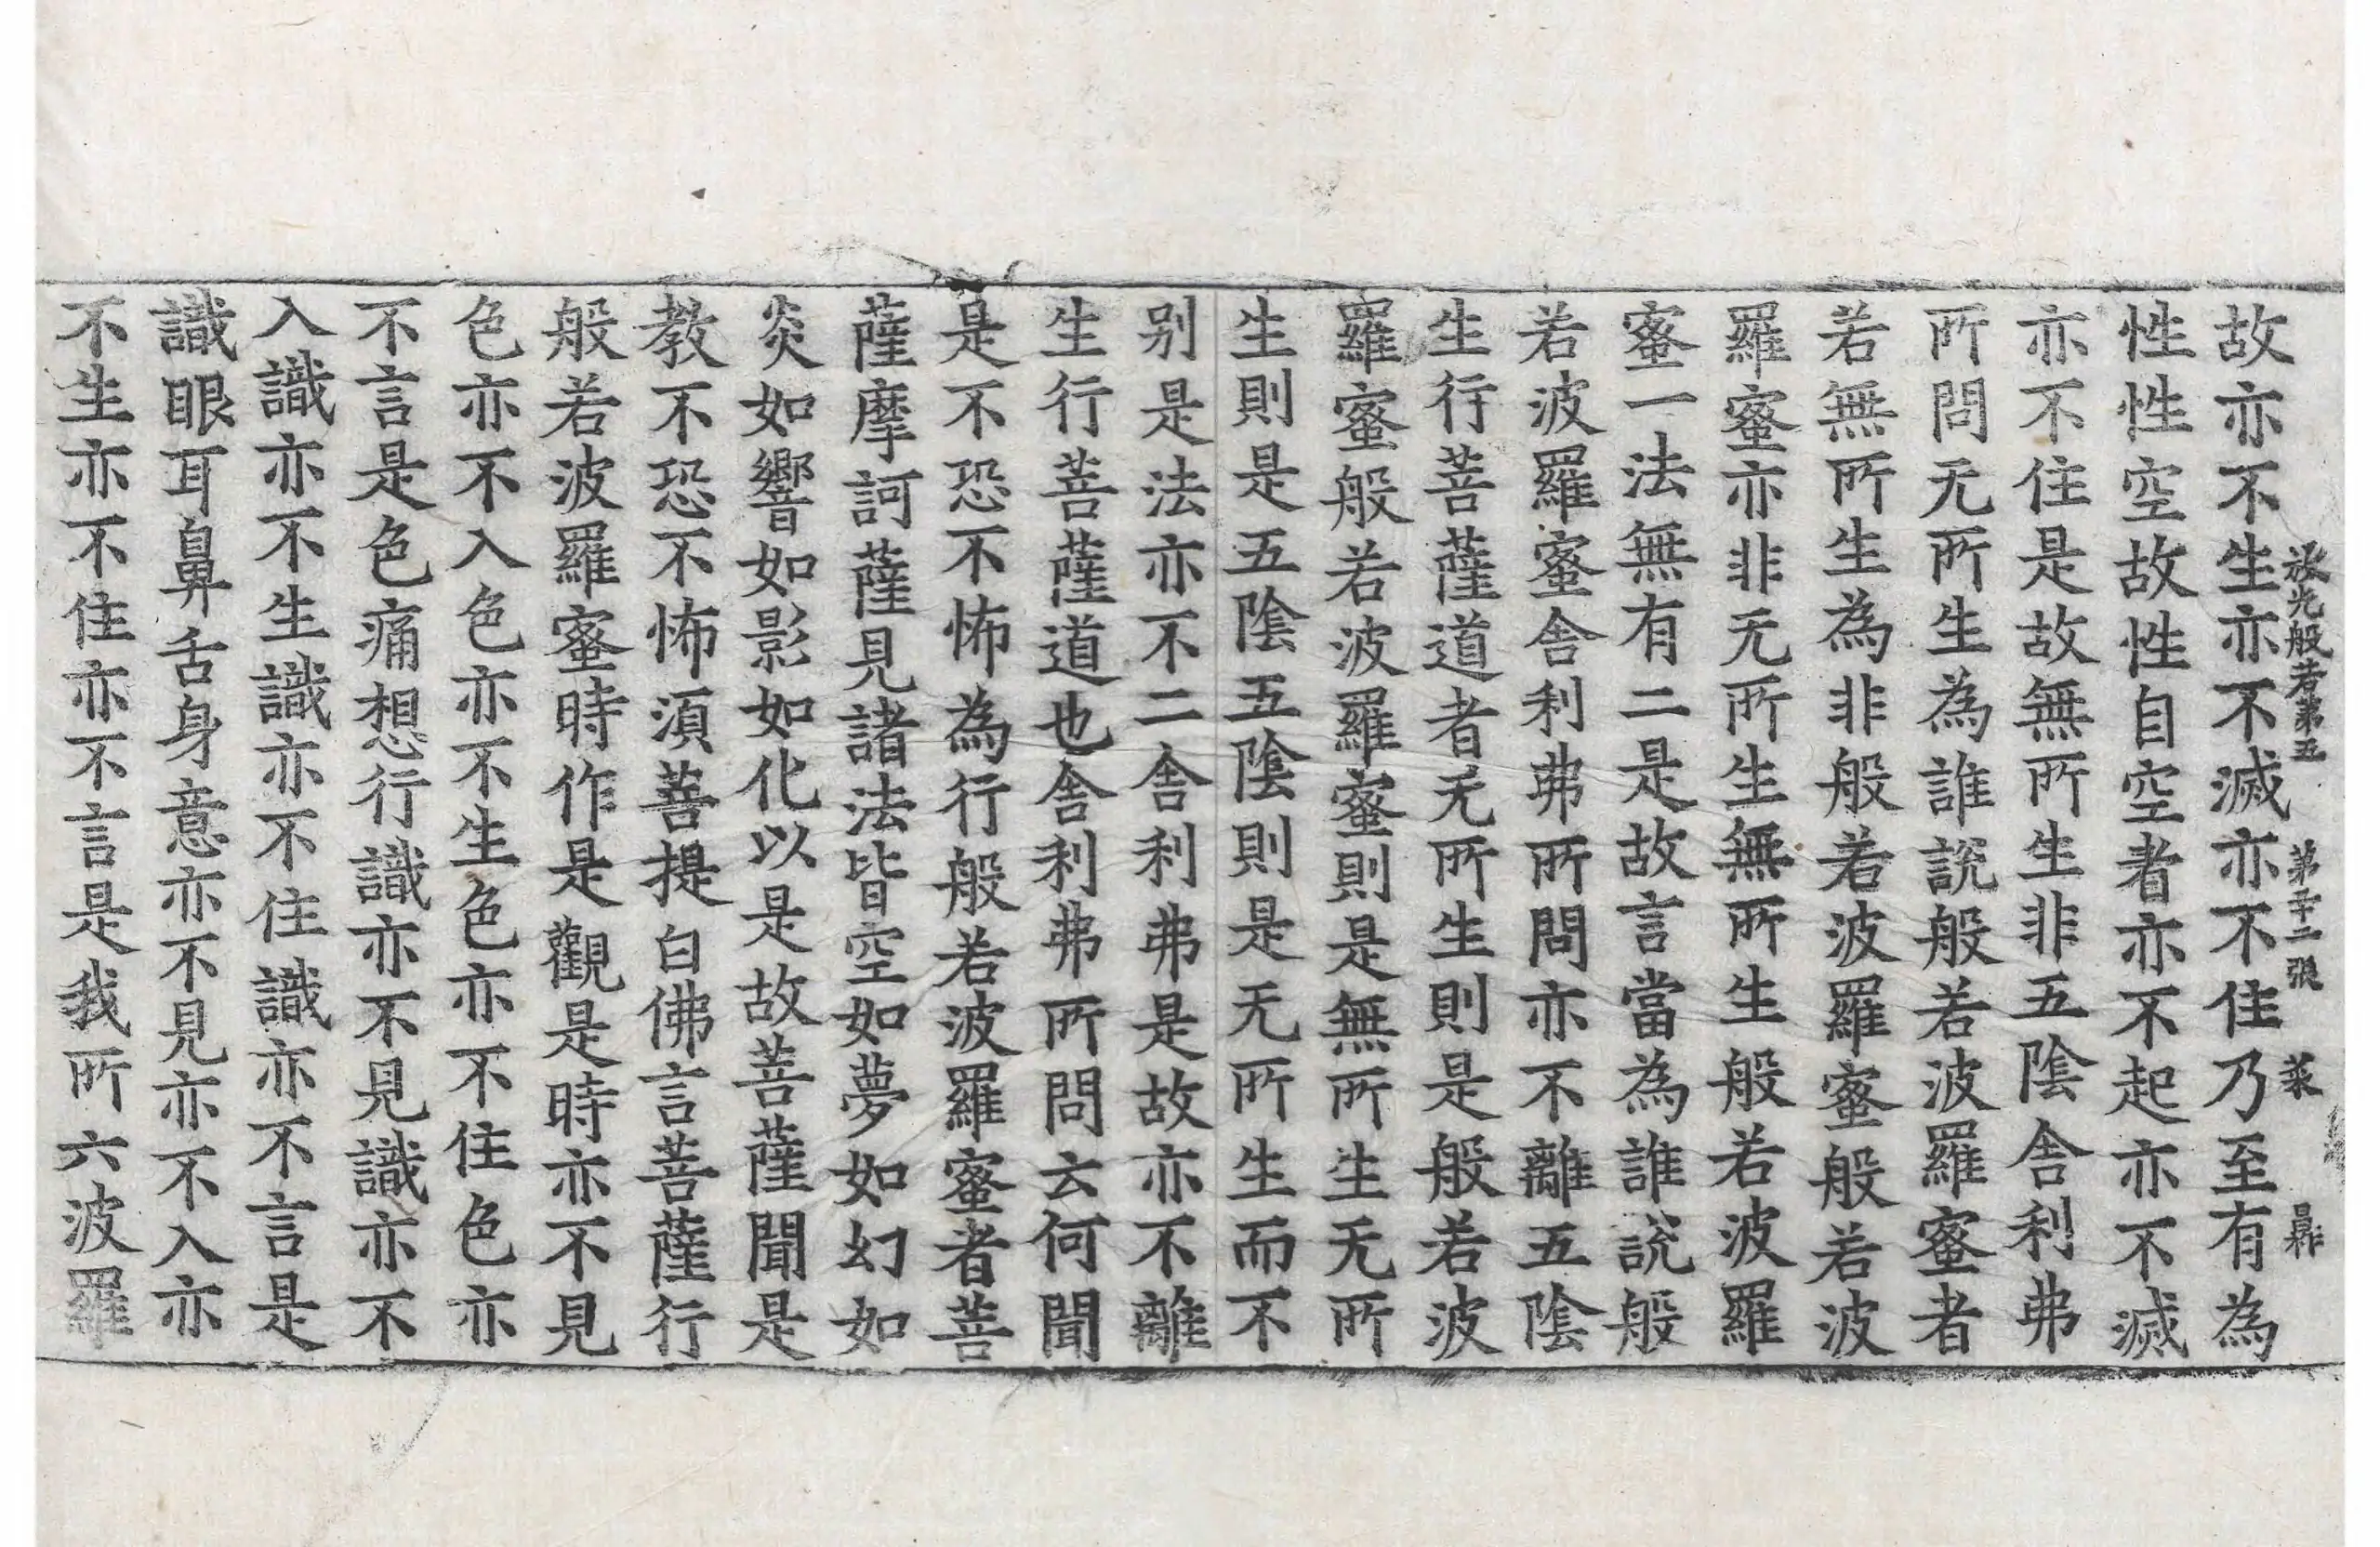 放光般若第五 第 二張 菜
故亦不生亦不滅亦不住乃至有為
性性空故性自空者亦不起亦不滅
亦不住是故無所生非五陰舍利弗
所問无所生為誰說般若波羅蜜者
若無所生為非般若波羅蜜般若波
羅蜜亦非无所生無所生般若波羅
蜜一法無有二是故言當為誰說般
若波羅蜜舍利弗所問亦不離五陰
生行菩薩道者无所生則是般若波
羅蜜般若波羅蜜則是無所生无所
生則是五陰五陰則是无所生而不
别是法亦不二舍利弗是故亦不離
生行菩薩道也舍利弗所問云何聞
是不恐不怖為行般若波羅蜜者菩
薩摩訶薩見諸法皆空如夢如幻如
炎如響如影如化以是故菩薩聞是
教不恐不怖湏菩提白佛言菩薩行
般若波羅蜜時作是觀是時亦不見
色亦不入色亦不生色亦不住色亦
不言是色痛想行識亦不見識亦不
入識亦不生識亦不住識亦不言是
識眼耳鼻舌身意亦不見亦不入亦
不生亦不住亦不言是我所六波羅